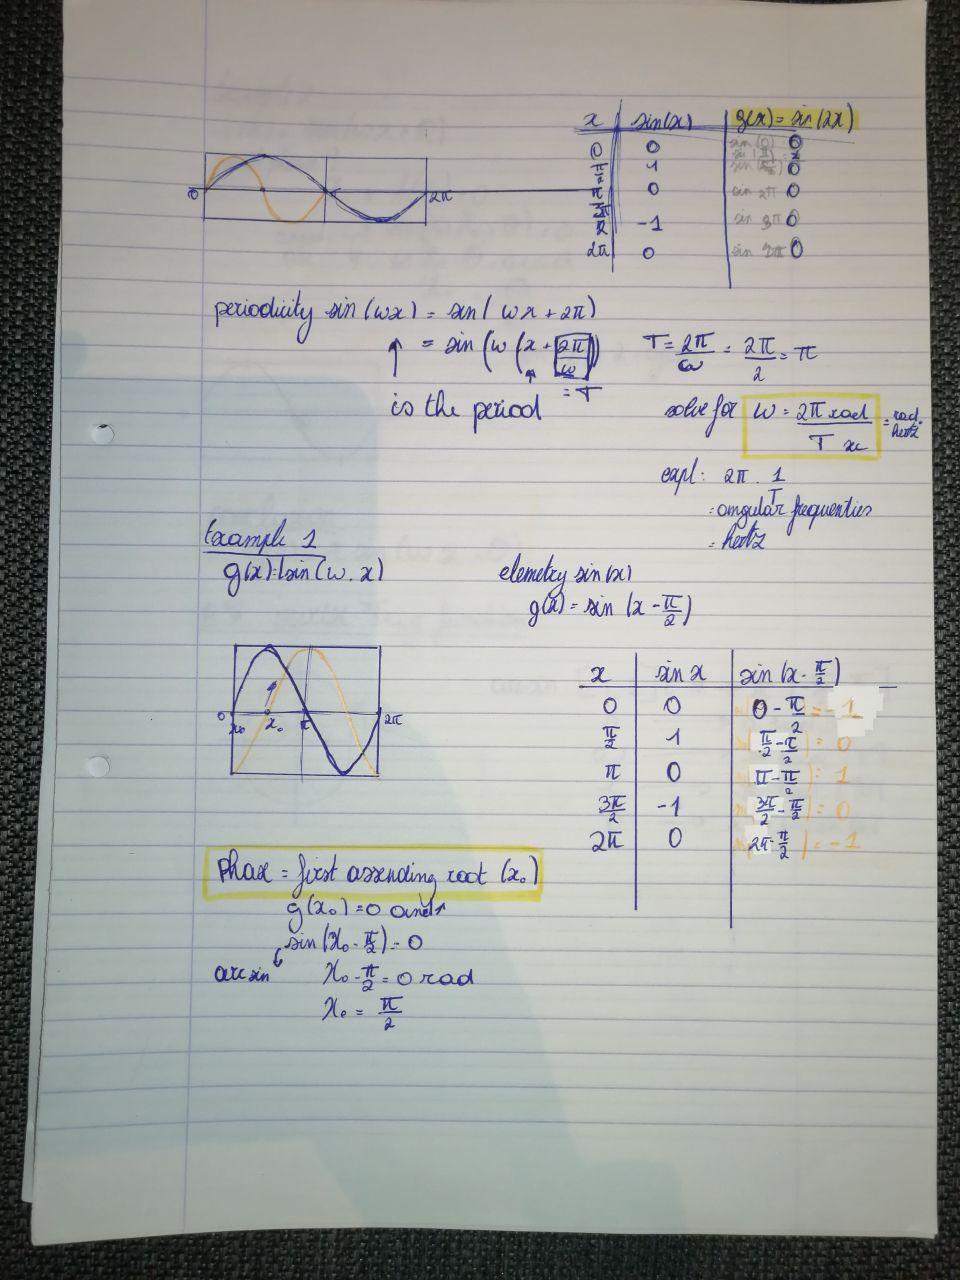 x sin(x) g(x) = sin(2x)
0 0 sin(0) 0
1 0
π 0 sin 2π 0
-1 sin 3π 0
2π 0 sin 0
0 2π
periodicity sin(ωx) = sin(ωx + 2π)
= sin(ω(x + 2π/ω)) T = 2π/ω = 2π/2 = π
= T
is the period
solve for ω = 2π rad / T = rad. hertz
expl: 2π . 1/T
: angular frequenties
= hertz
Example 1
g(x) = 1 sin(ω. x)
elemetry sin(x)
g(x) = sin(x - π/2)
0 x₀ x₀ π 2π
x sin x sin(x - π/2)
0 0 0 - π/2 = -1
π/2 1 π/2 - π/2 = 0
π 0 π - π/2 = 1
3π/2 -1 3π/2 - π/2 = 0
2π 0 2π - π/2 = -1
Phase = first assending root (x₀)
g(x₀) = 0 and ↑
sin(x₀ - π/2) = 0
arcsin x₀ - π/2 = 0 rad
x₀ = π/2